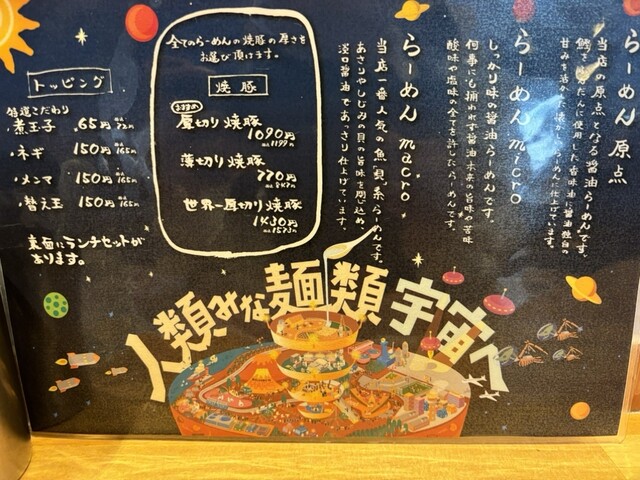 らーめん 原点
当店の原点となる醤油らーめんです。
甘みを活かした懐かしらーめんに仕上げています。
らーめん micro
しっかり味の醤油らーめんです。
何事にも捕われず醤油本来の旨味や苦味
酸味や塩味の全てを許したらーめんです。
らーめん macro
当店一番人気の魚貝系らーめんです。
あさりやしじみの貝の旨味を閉じ込め、
淡口醤油であっさり仕上げています。
全てのらーめんの焼豚の厚さを
お選び頂けます。
焼豚
厚切り焼豚
1090円
税込1199円
薄切り焼豚
770円
税込847円
世界一厚切り焼豚
1430円
税込1573円
トッピング
特造こだわり
・煮玉子 65円 税込72円
・ネギ 150円 税込165円
・メンマ 150円 税込165円
・替え玉 150円 税込165円
裏面にランチセットが
あります。
人類みな麺類宇宙へ